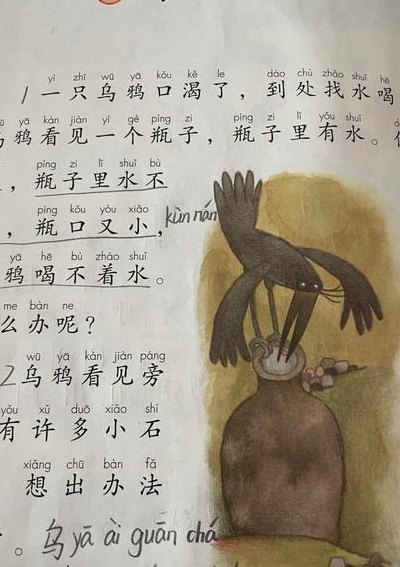 yì zhī wū yā kǒu kě le dào chù zhǎo shuǐ hē
1一只乌鸦口渴了，到处找水喝
yā kàn jiàn yí gè píng zi píng zi lǐ yǒu shuǐ
鸦看见一个瓶子，瓶子里有水。
píng zi lǐ shuǐ bù
，瓶子里水不
píng kǒu yòu xiǎo
，瓶口又小， kùn nán
yā hē bù zháo shuǐ
鸦喝不着水。
me bàn ne
么办呢？
wū yā kàn jiàn páng
2乌鸦看见旁
yǒu xǔ duō xiǎo shí
有许多小石
xiǎng chū bàn fǎ
想出办法
。乌yā ài guān chá